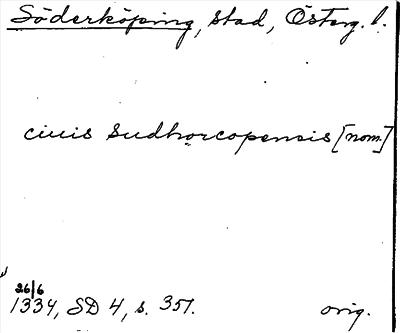 Söderköping, stad, Österg. l.
ciuis Sudhorcopensis [nom.]
26/6
1334, SD 4, s. 351.
orig.